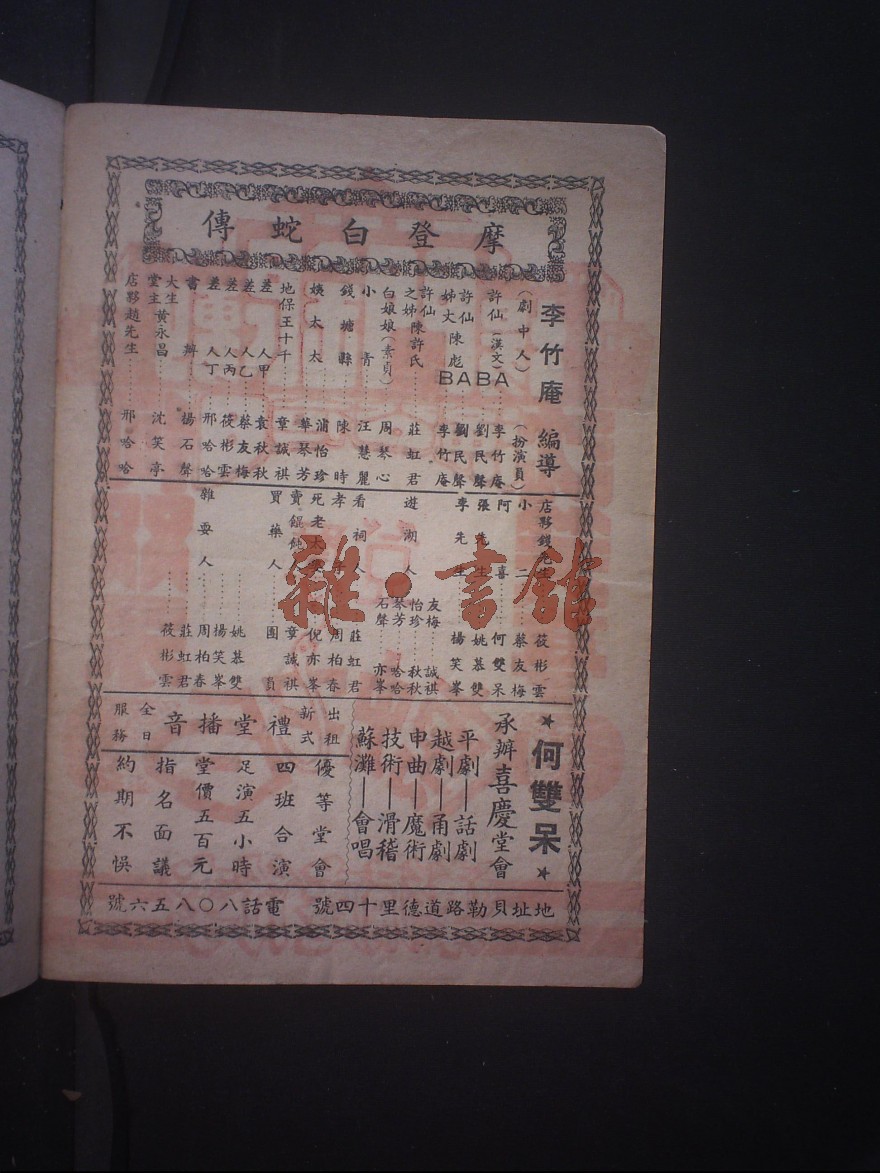 摩登白蛇傳
李竹庵 編導
（劇中人） （扮演員）
許仙（漢文）A 李竹庵
B 劉民聲
許仙姊丈 陳彪 A 劉民聲
B 李竹庵
許仙之姊 陳許氏 莊虹君
白娘娘（素貞） 周琴心
小青 汪慧麗
錢塘縣 陳時
姨太太 浦怡珍
華琴芳
地保王十千 章誠祺
差人甲 袁秋秋
差人乙 蔡友梅
差人丙 筱彬雲
差人丁 邢哈哈
書辦 揚石聲
大生堂主黃永昌 沈笑亭
店夥趙先生 邢哈哈
店夥錢先生 筱彬雲
小二 蔡友梅
阿喜 何雙呆
張先生 姚慕雙
李先生 楊笑峯
遊湖人 友梅 誠祺
怡珍 秋秋
琴芳 哈哈
石聲 亦峯
看祠人 莊虹君
孝子 周柏春
死老太婆 倪亦峯
賣餛飩 章誠祺
買藥人 團員
雜耍人 姚慕雙
楊笑峯
周柏春
莊虹君
筱彬雲
★何雙呆★
承辦喜慶堂會
平劇—話劇
越劇—甬劇
申曲—魔術
技術—滑稽
蘇灘—會唱
出租新式禮堂播音全日服務
優等堂會
四班合演
足演五小時
堂價五百元
指名面議
約期不悞
地址貝勒路道德里十四號 電話八〇八五六號
雜·書館